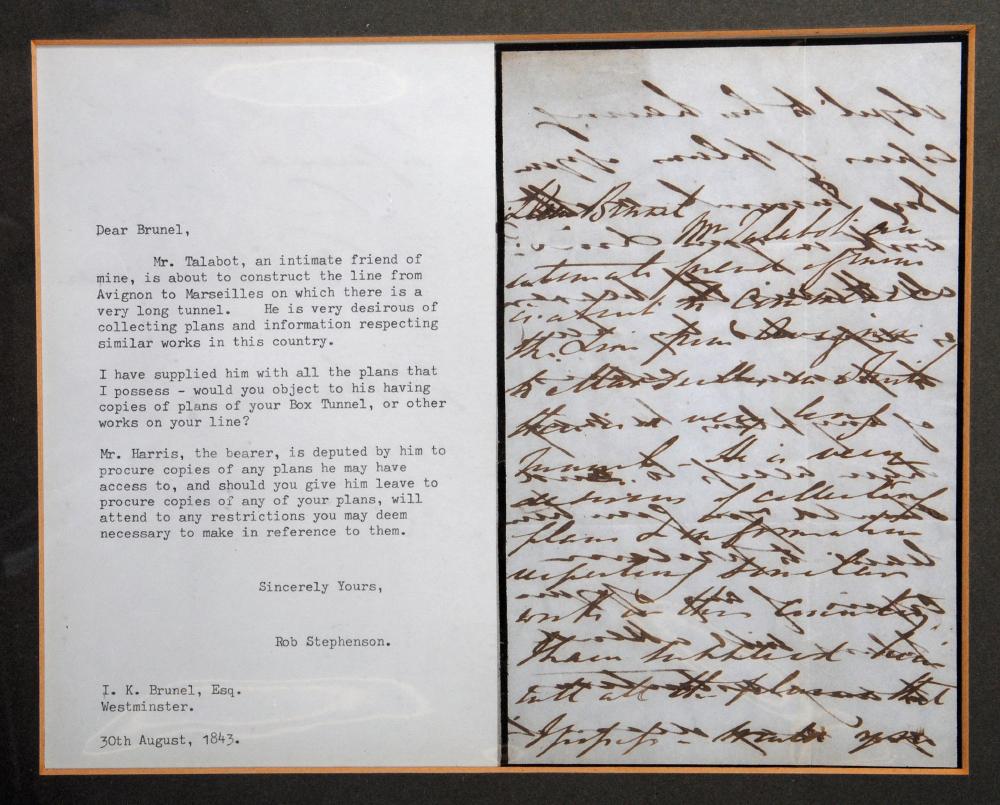 Dear Brunel,
Mr. Talabot, an intimate friend of
mine, is about to construct the line from
Avignon to Marseilles on which there is a
very long tunnel. He is very desirous of
collecting plans and information respecting
similar works in this country.
I have supplied him with all the plans that
I possess - would you object to his having
copies of plans of your Box Tunnel, or other
works on your line?
Mr. Harris, the bearer, is deputed by him to
procure copies of any plans he may have
access to, and should you give him leave to
procure copies of any of your plans, will
attend to any restrictions you may deem
necessary to make in reference to them.
Sincerely Yours,
Rob Stephenson.
I. K. Brunel, Esq.
Westminster.
30th August, 1843.
Dear Brunel
Mr Talabot an
intimate friend of mine
is about to construct
the Line from Avignon
to Marseilles on which
there is a very long
Tunnel - He is very
desirous of collecting
plans & information
respecting similar
works in this country.
I have supplied him
with all the plans that
I possess - would you